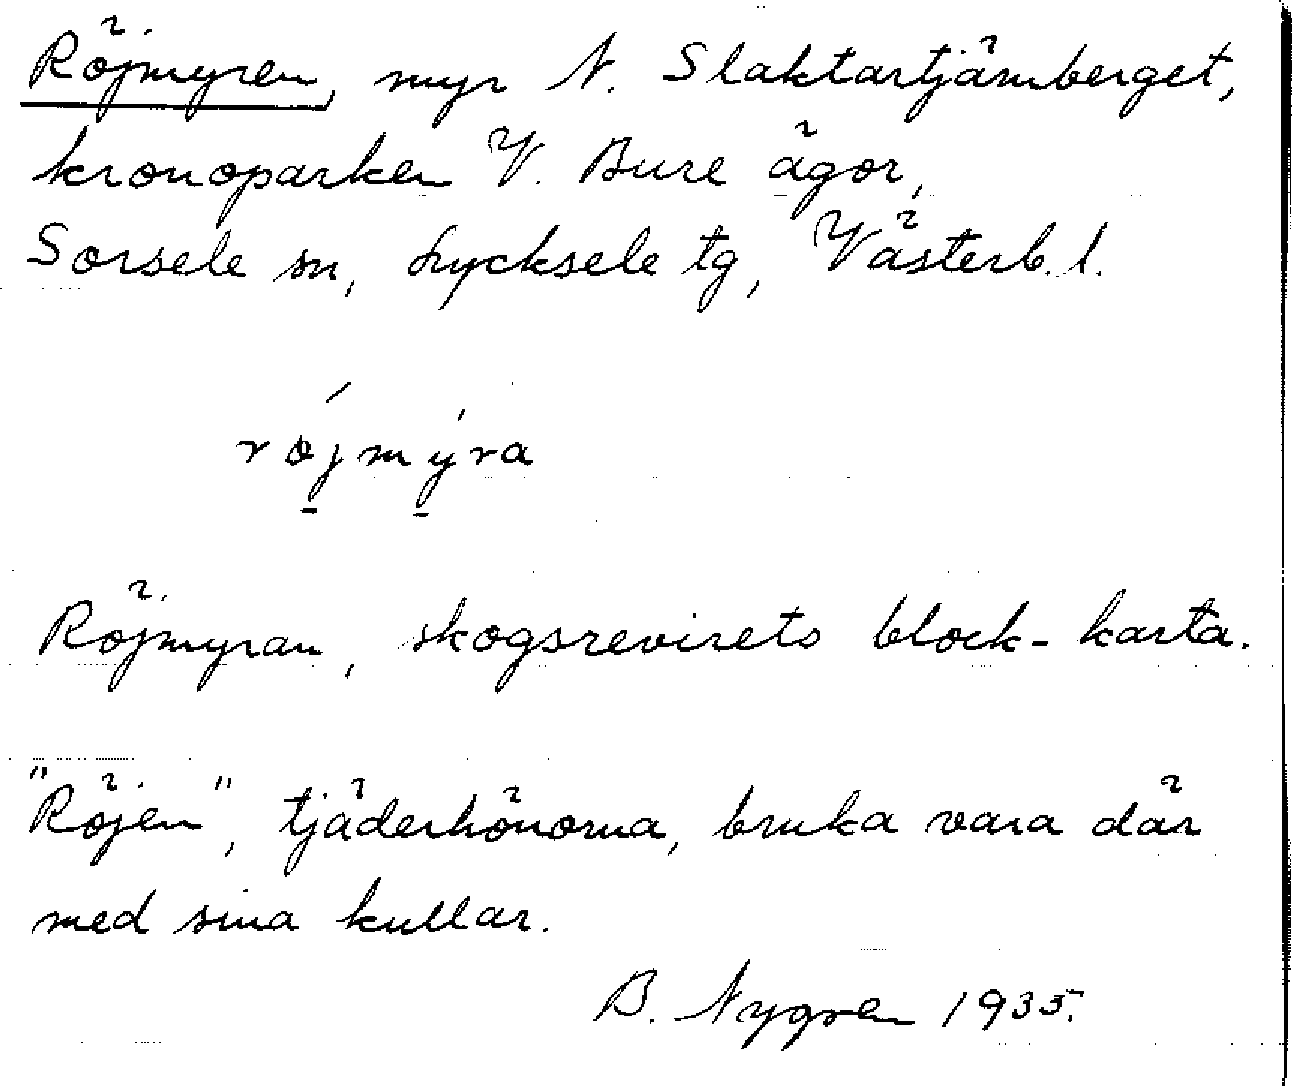 Röjmyren, myr N. Slaktartjärnberget,
kronoparken V. Bure ägor,
Sorsele sn, Lycksele tg, Västerb. l.
röjmýra
Röjmyran, skogsrevirets block-karta.
"Röjen", tjäderhönorna, bruka vara där
med sina kullar.
B. Nygren 1935.